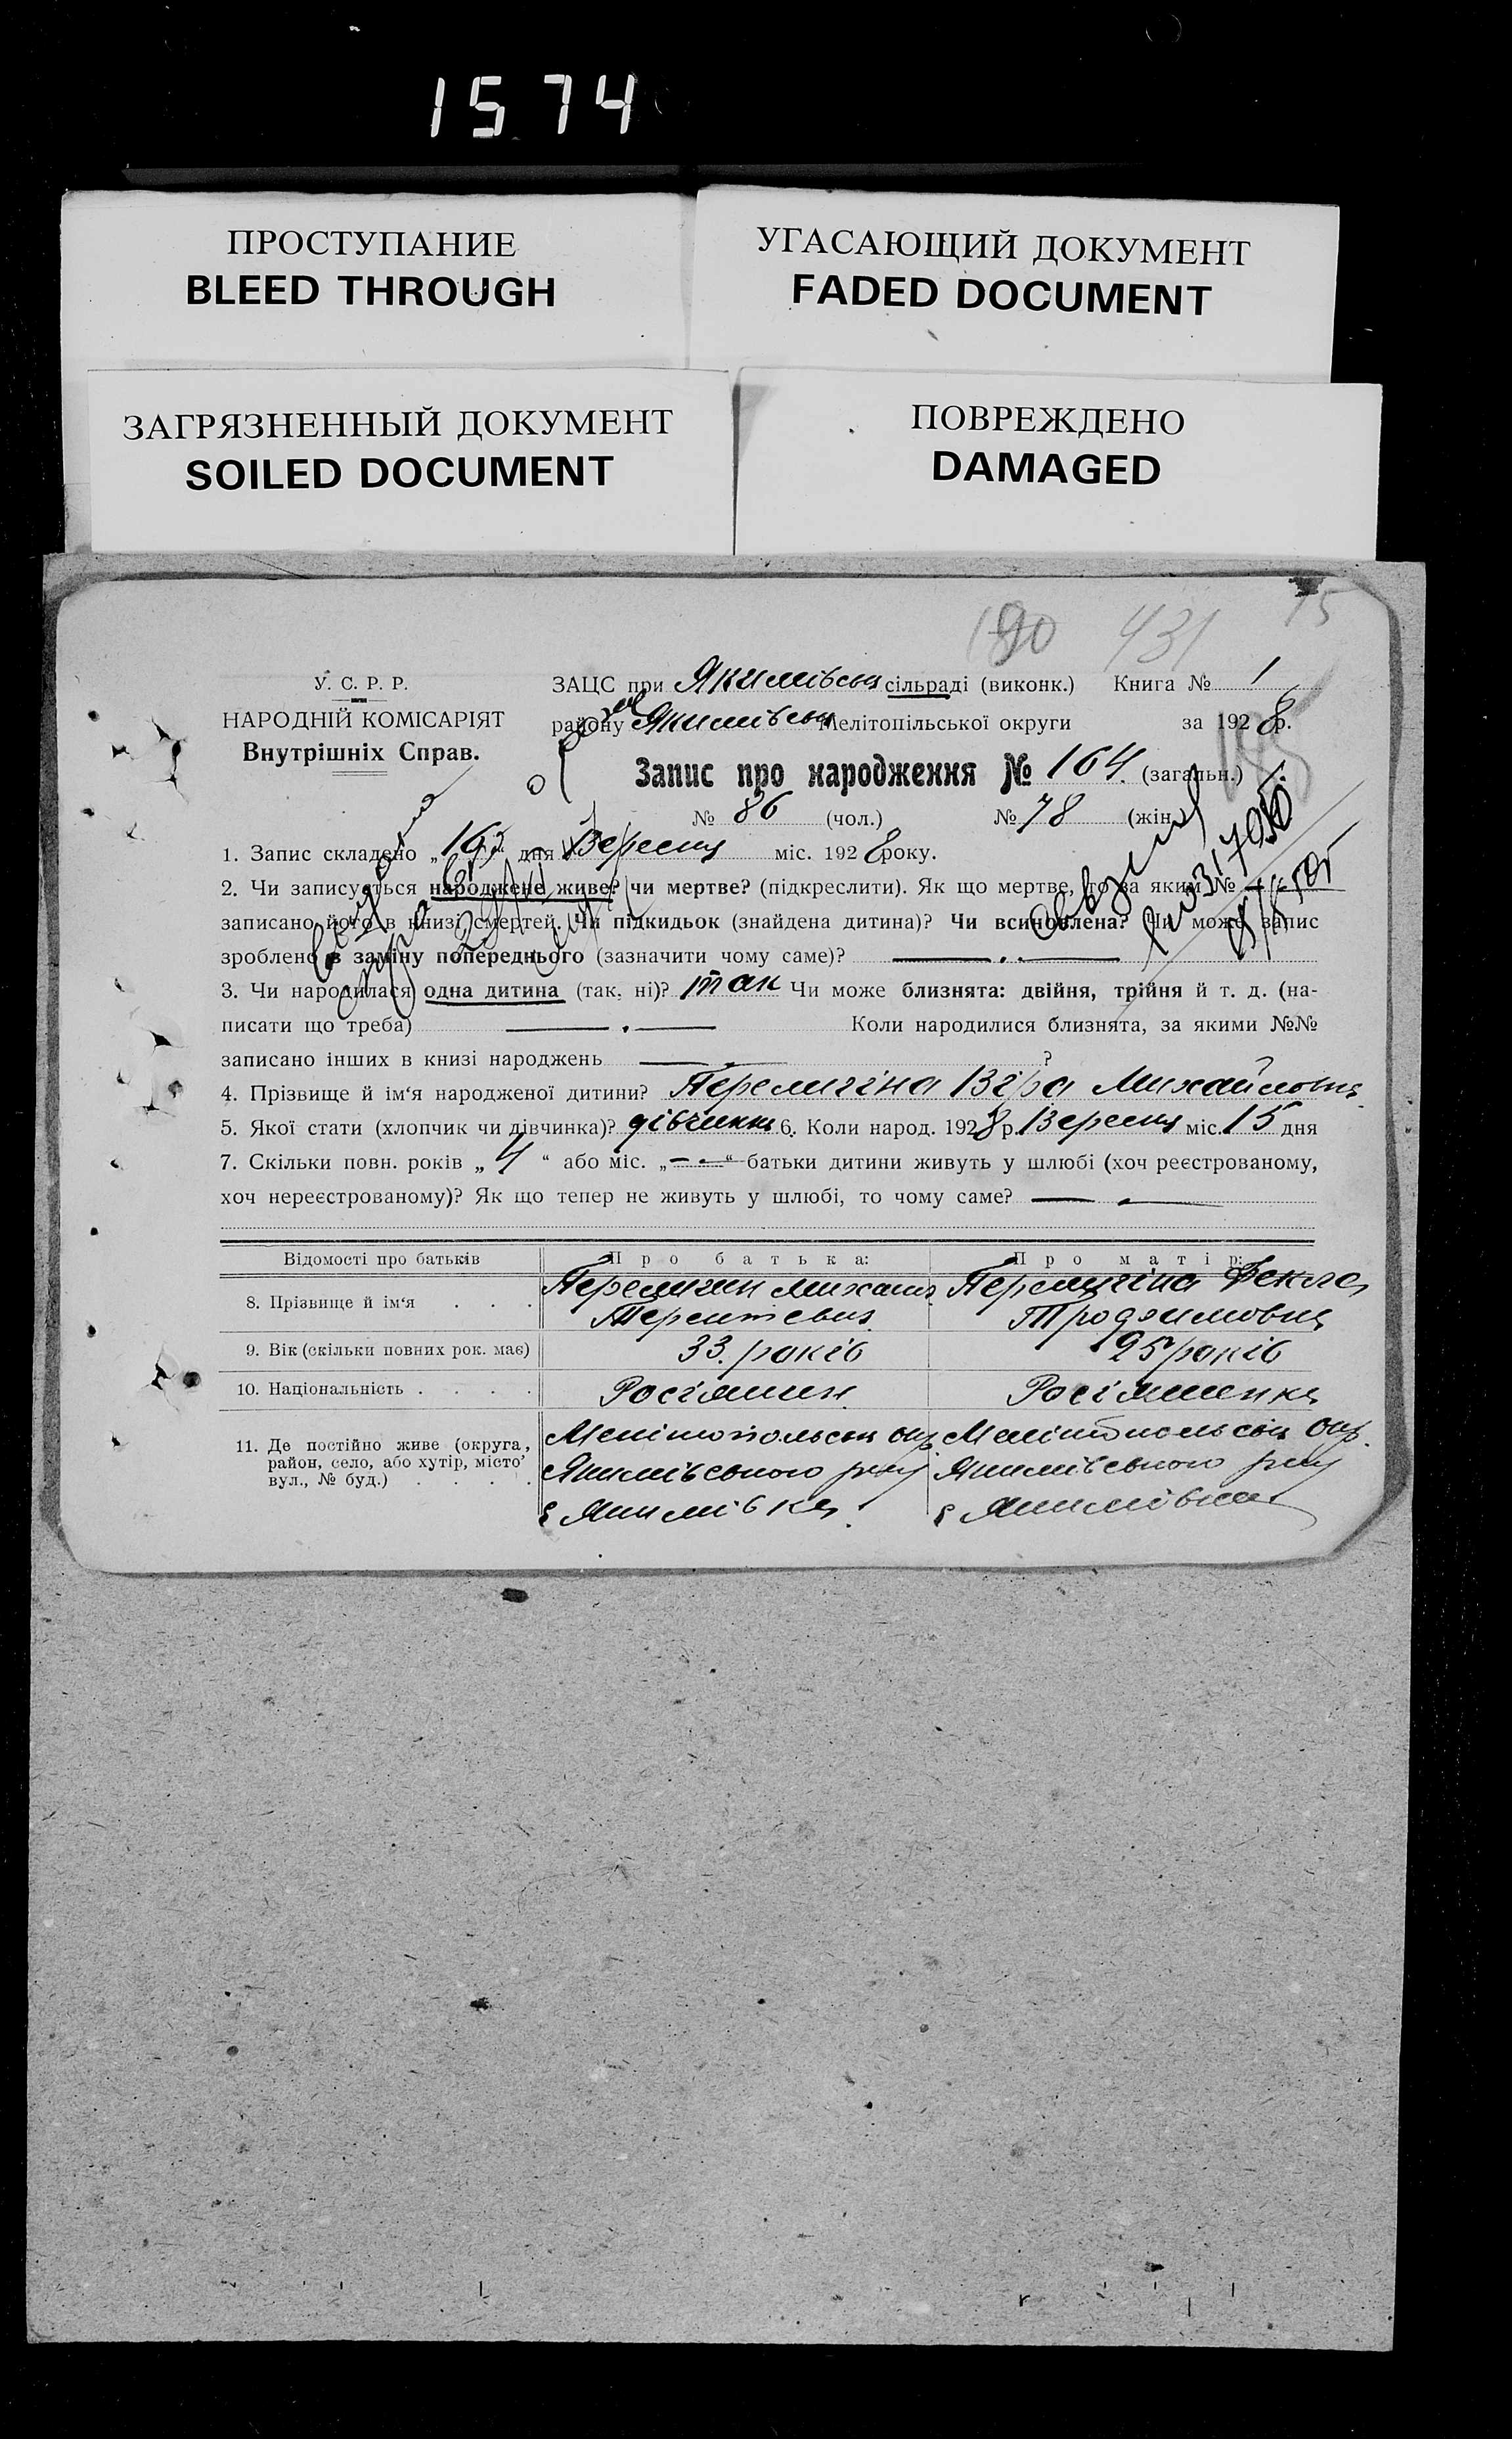 1574
ПРОСТУПАНИЕ
BLEED THROUGH
УГАСАЮЩИЙ ДОКУМЕНТ
FADED DOCUMENT
ЗАГРЯЗНЕННЫЙ ДОКУМЕНТ
SOILED DOCUMENT
ПОВРЕЖДЕНО
DAMAGED
190 431 15
У. С. Р. Р.
НАРОДНІЙ КОМІСАРІЯТ
Внутрішніх Справ.
ЗАЦС при Якимівськ сільраді (виконк.) Книга № 1
району Якимівськ Мелітопільської округи за 1928 р.
Запис про народження № 164 (загальн.)
№ 86 (чол.) № 78 (жін.)
1. Запис складено „16" дня Вересня міс. 1928 року.
2. Чи записується народжене живе? чи мертве? (підкреслити). Як що мертве, то за яким №
записано його в книзі смертей. Чи підкидьок (знайдена дитина)? Чи всиновлена? Чи може запис
зроблено в заміну попереднього (зазначити чому саме)?
3. Чи народилася одна дитина (так, ні)? так Чи може близнята: двійня, трійня й т. д. (на-
писати що треба) Коли народилися близнята, за якими №№
записано інших в книзі народжень ?
4. Прізвище й ім'я народженої дитини? Перелигіна Віра Михайловна
5. Якої стати (хлопчик чи дівчинка)? дівчинка 6. Коли народ. 1928 р. Вересня міс. 15 дня
7. Скільки повн. років „4" або міс. „— —" батьки дитини живуть у шлюбі (хоч реєстрованому,
хоч нереєстрованому)? Як що тепер не живуть у шлюбі, то чому саме?
Відомості про батьків Про батька: Про матір:
8. Прізвище й ім'я . . . Перелигин Михаил Перелигіна Фекла
Терентевич Трофимовна
9. Вік (скільки повних рок. має) 33. років 25 років
10. Національність . . . . Росіянин Росіяненка
11. Де постійно живе (округа, район, село, або хутір, місто' вул., № буд.) . . . .
Мелітопольськ окр. Мелітопольськ окр.
Якимівського р-ну Якимівського р-ну
с Якимівка. с Якимівка